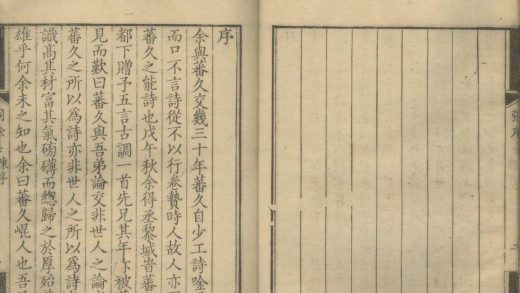 序
余與蕃久交幾三十年蕃久自少工詩唫
而口不言詩從不以行卷贄時人故人亦
蕃久之能詩也戊午秋余得丞黎城旹蕃
都下贈予五言古調一首先兄其年亦被
見而歎曰蕃久與吾弟論交非世人之論
蕃久之所以為詩亦非世人之所以為詩
識高其材富其氣磅礡而總歸之於厚殆
雄乎何余未之知也余曰蕃久崐人也吾